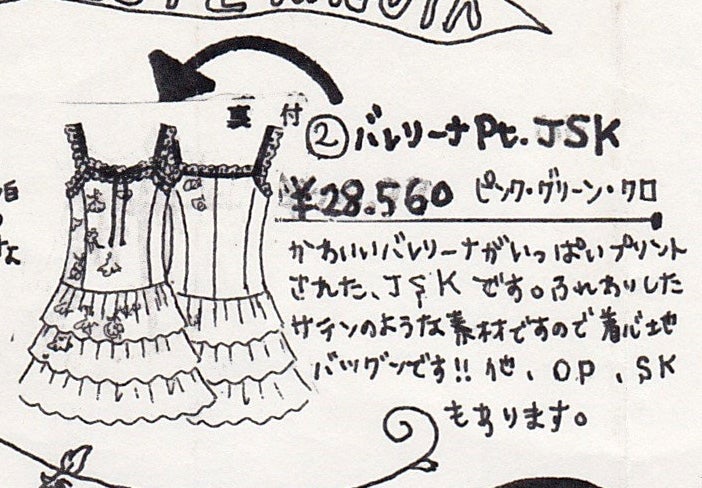 裏 付
② バレリーナPt. JSK
¥28.560 ピンク・グリーン・クロ
かわいいバレリーナがいっぱいプリント
された、JSKです。ふんわりした
サテンのような素材ですので着心地
バツグンです!! 他、OP、SK
もあります。